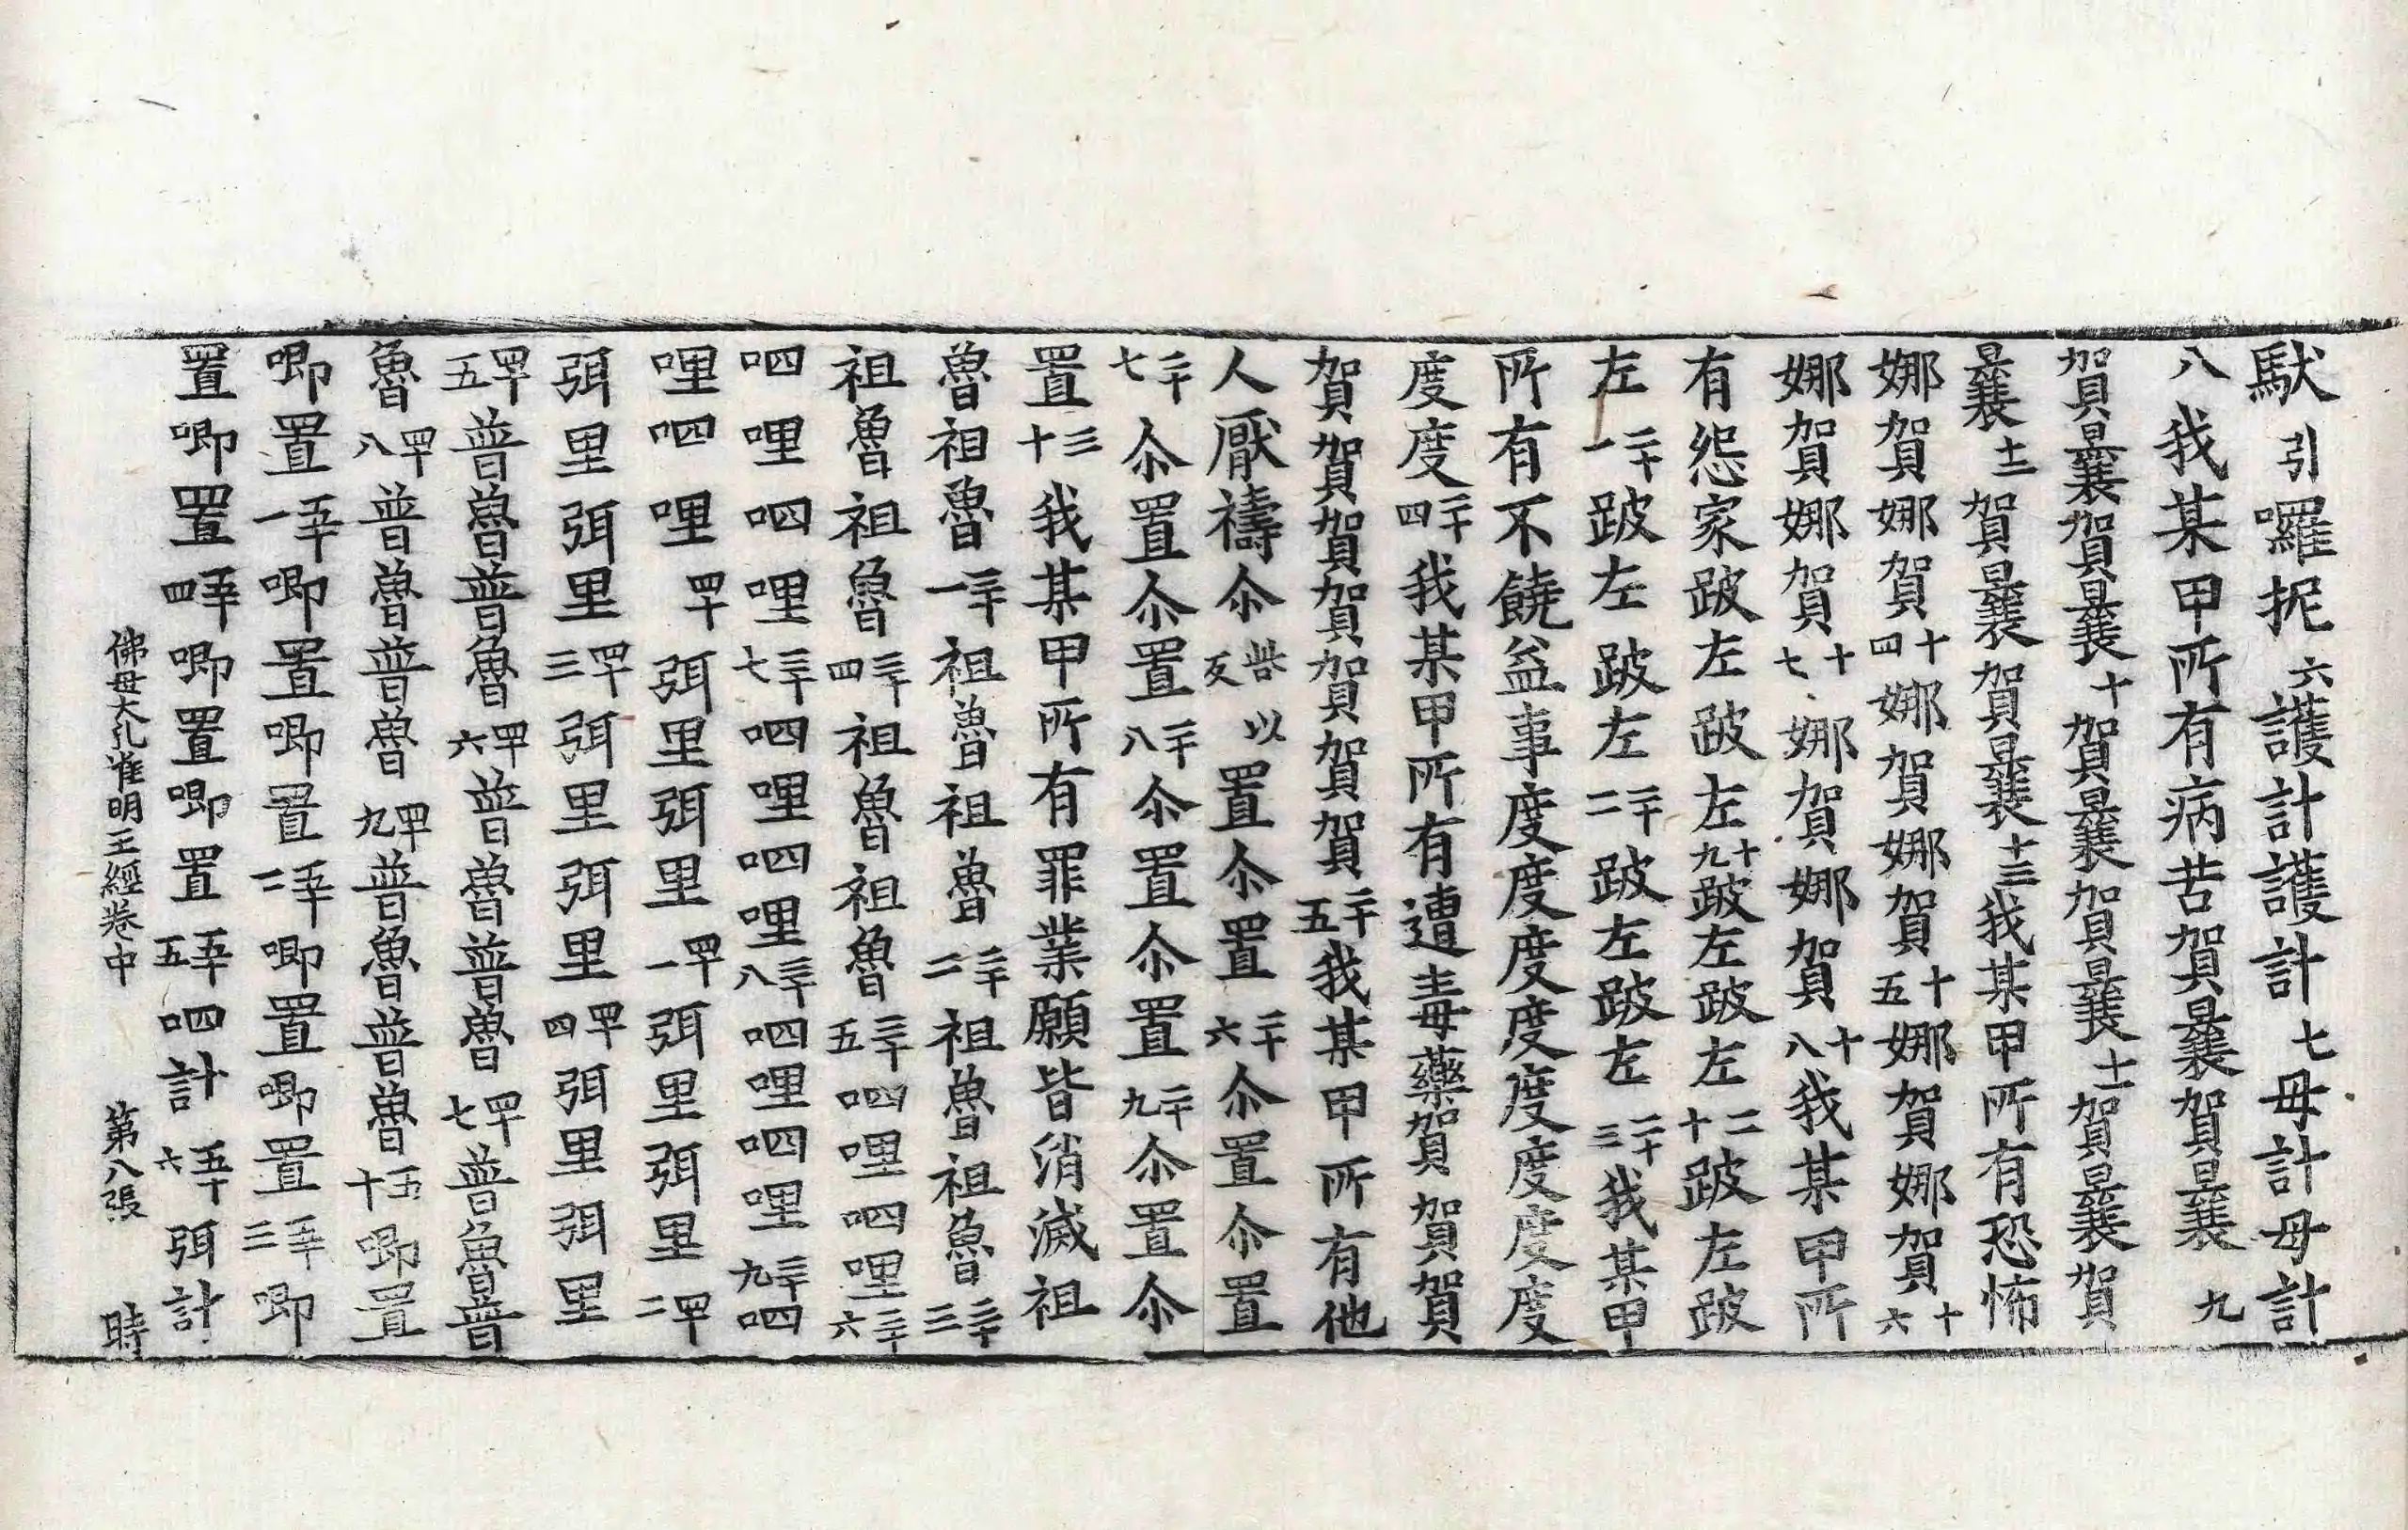 馱引囉抳六護計護計七毋計毋計
八我某甲所有病苦賀曩賀曩九
賀曩賀曩十賀曩賀曩十一賀曩賀
曩十二賀曩賀曩十三我某甲所有恐怖
娜賀娜賀十四娜賀娜賀十五娜賀娜賀十六
娜賀娜賀十七娜賀娜賀十八我某甲所
有怨家跛左跛左十九跛左跛左二十跛左跛
左二十一跛左跛左二十二跛左跛左二十三我某甲
所有不饒益事度度度度度度度度
度度二十四我某甲所有遭毒藥賀賀賀
賀賀賀賀賀賀賀二十五我某甲所有他
人厭禱尒呰以反置尒置二十六尒置尒置
二十七尒置尒置二十八尒置尒置二十九尒置尒
置三十我某甲所有罪業願皆消滅祖
魯祖魯三十一祖魯祖魯三十二祖魯祖魯三十三
祖魯祖魯三十四祖魯祖魯三十五呬哩呬哩三十六
呬哩呬哩三十七呬哩呬哩三十八呬哩呬哩三十九呬
哩呬哩四十弭里弭里四十一弭里弭里四十二
弭里弭里四十三弭里弭里四十四弭里弭里
四十五普魯普魯四十六普魯普魯四十七普魯普
魯四十八普魯普魯四十九普魯普魯五十唧置
唧置五十一唧置唧置五十二唧置唧置五十三唧
置唧置五十四唧置唧置五十五呬計五十六弭計
佛母大孔雀明王經卷中 第八張 時